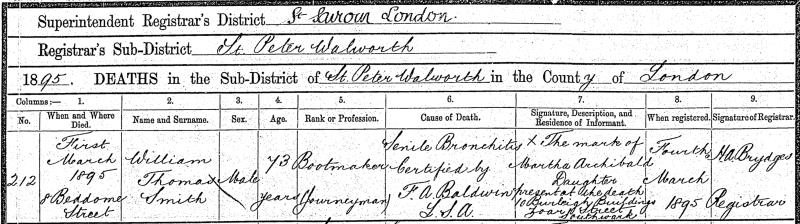 Superintendent Registrar's District St. Saviour London.
Registrar's Sub-District St. Peter Walworth
1895. DEATHS in the Sub-District of St. Peter Walworth in the County of London
Columns:— 1. 2. 3. 4. 5. 6. 7. 8. 9.
No. When and Where Died. Name and Surname. Sex. Age. Rank or Profession. Cause of Death. Signature, Description, and Residence of Informant. When registered. Signature of Registrar.
212
First
March
1895
8 Beddome
Street
William
Thomas
Smith
Male
73
years
Bootmaker
(Journeyman)
Senile Bronchitis
Certified by
F. A. Baldwin
L.S.A.
X The mark of
Martha Archibald
Daughter
present at the death
10 Burleigh Buildings
Zoar Street
Southwark
Fourth
March
1895
H.A. Brydges
Registrar